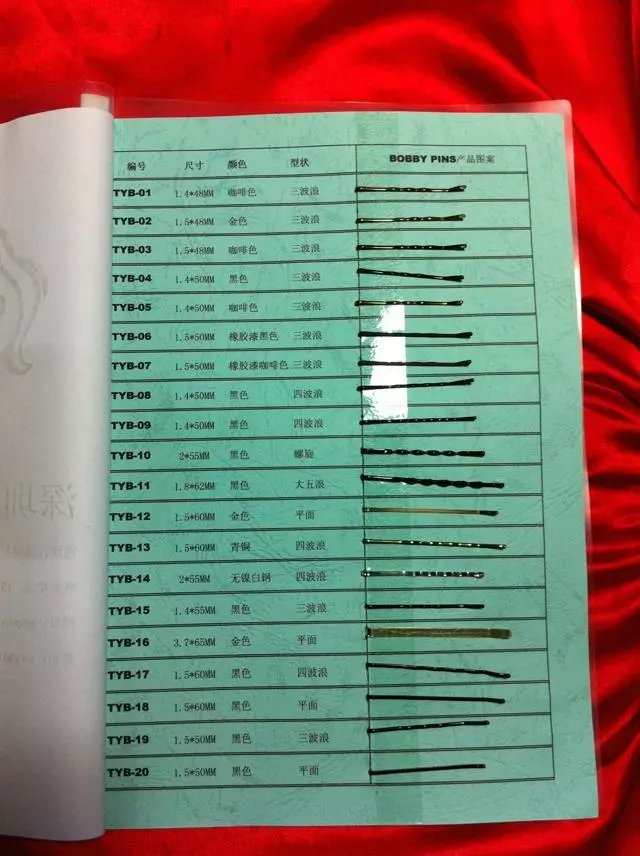 编号 尺寸 颜色 型状 BOBBY PINS产品图案
TYB-01 1.4*48MM 咖啡色 三波浪
TYB-02 1.5*48MM 金色 三波浪
TYB-03 1.5*48MM 咖啡色 三波浪
TYB-04 1.4*50MM 黑色 三波浪
TYB-05 1.4*50MM 咖啡色 三波浪
TYB-06 1.5*50MM 橡胶漆黑色 三波浪
TYB-07 1.5*50MM 橡胶漆咖啡色 三波浪
TYB-08 1.4*50MM 黑色 四波浪
TYB-09 1.4*50MM 黑色 四波浪
TYB-10 2*55MM 黑色 螺旋
TYB-11 1.8*62MM 黑色 大五浪
TYB-12 1.5*60MM 金色 平面
TYB-13 1.5*60MM 青铜 四波浪
TYB-14 2*55MM 无镍白钢 四波浪
TYB-15 1.4*55MM 黑色 三波浪
TYB-16 3.7*65MM 金色 平面
TYB-17 1.5*60MM 黑色 四波浪
TYB-18 1.5*60MM 黑色 平面
TYB-19 1.5*50MM 黑色 三波浪
TYB-20 1.5*50MM 黑色 平面
深圳